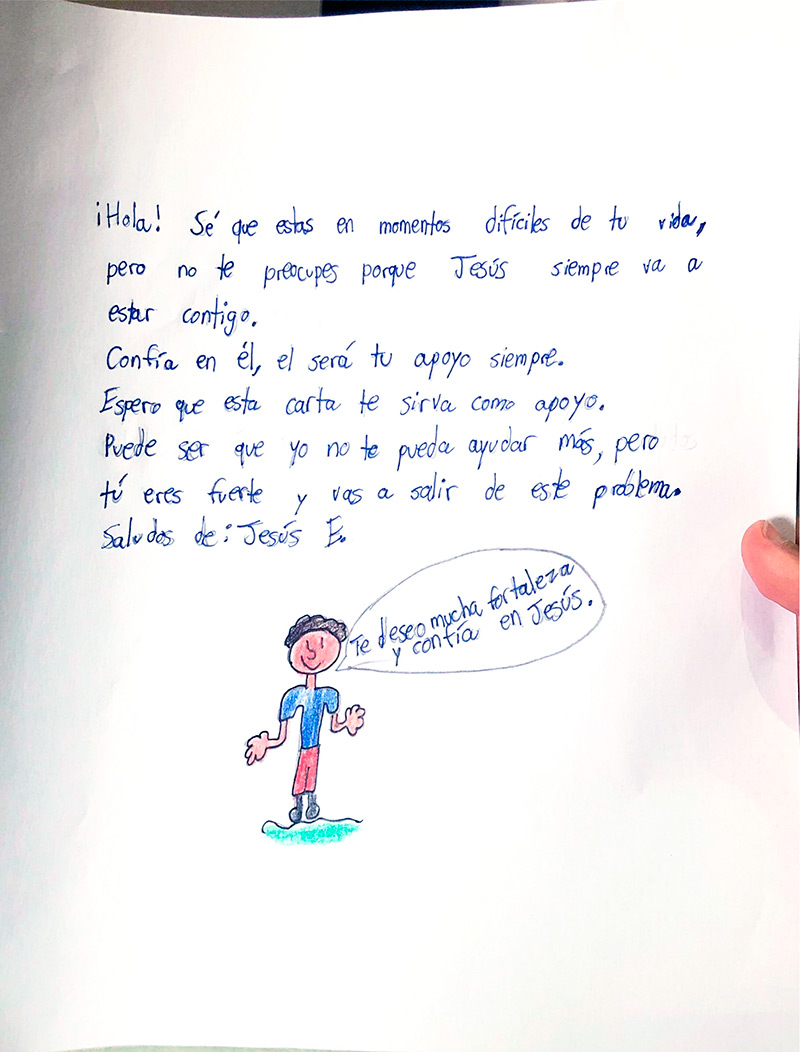 ¡Hola! Sé que estas en momentos difíciles de tu vida,
pero no te preocupes porque Jesús siempre va a
estar contigo.
Confía en él, el será tu apoyo siempre.
Espero que esta carta te sirva como apoyo.
Puede ser que yo no te pueda ayudar más, pero
tú eres fuerte y vas a salir de este problema.
Saludos de: Jesús E.
Te deseo mucha fortaleza
y confía en Jesús.